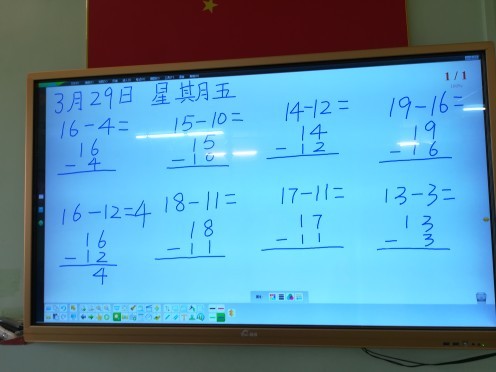 1/1
3月29日 星期五
16-4= 15-10= 14-12= 19-16=
16 15 14 19
-4 -10 -12 -16
16-12=4 18-11= 17-11= 13-3=
16 18 17 13
-12 -11 -11 -3
4